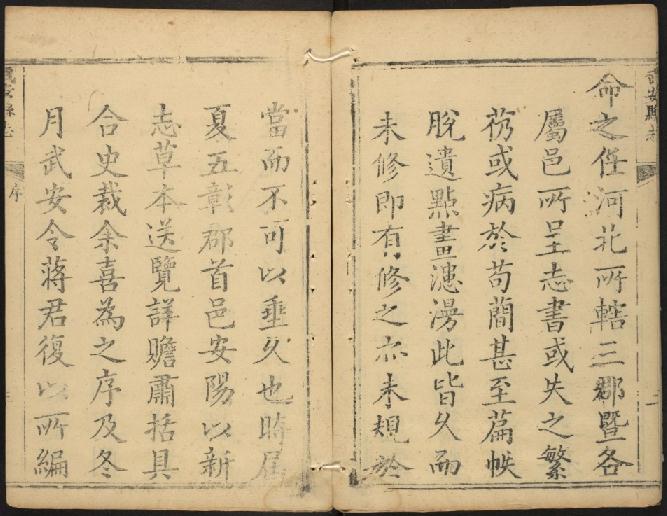 命之任河北所轄三郡暨各
屬邑所呈志書或失之繁
芿或病於苟簡甚至篇帙
脫遺點畫漶漫此皆久而
未修即有修之亦未規於
當而不可以垂久也時屆
夏五彰郡首邑安陽以新
志草本送覽詳贍肅括具
合史裁余喜為之序及冬
月武安令蔣君復以所編
武安縣志
序